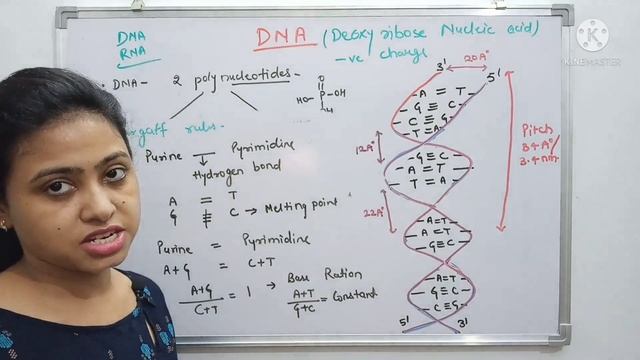 DNA
RNA
DNA (Deoxy ribose Nucleic acid)
-ve charge
KINEMASTER
DNA - 2 polynucleotides -
O
HO - P - OH
rgaff ruls -
Purine Pyrimidine
Hydrogen bond
A = T
G ≡ C → Melting point
Purine = Pyrimidine
A+G = C+T
A+G / C+T = 1 → Base Ration
A+T / G+C = Constant
3' 20A° 5'
- A = T -
- G ≡ C -
- C ≡ G -
T = A
12A°
- G ≡ C -
- A = T -
- T = A -
22A°
- A = T -
- A = T -
- G ≡ C -
- A = T -
- G ≡ C -
- C ≡ G -
5' 3'
Pitch
34A°/
3.4nm